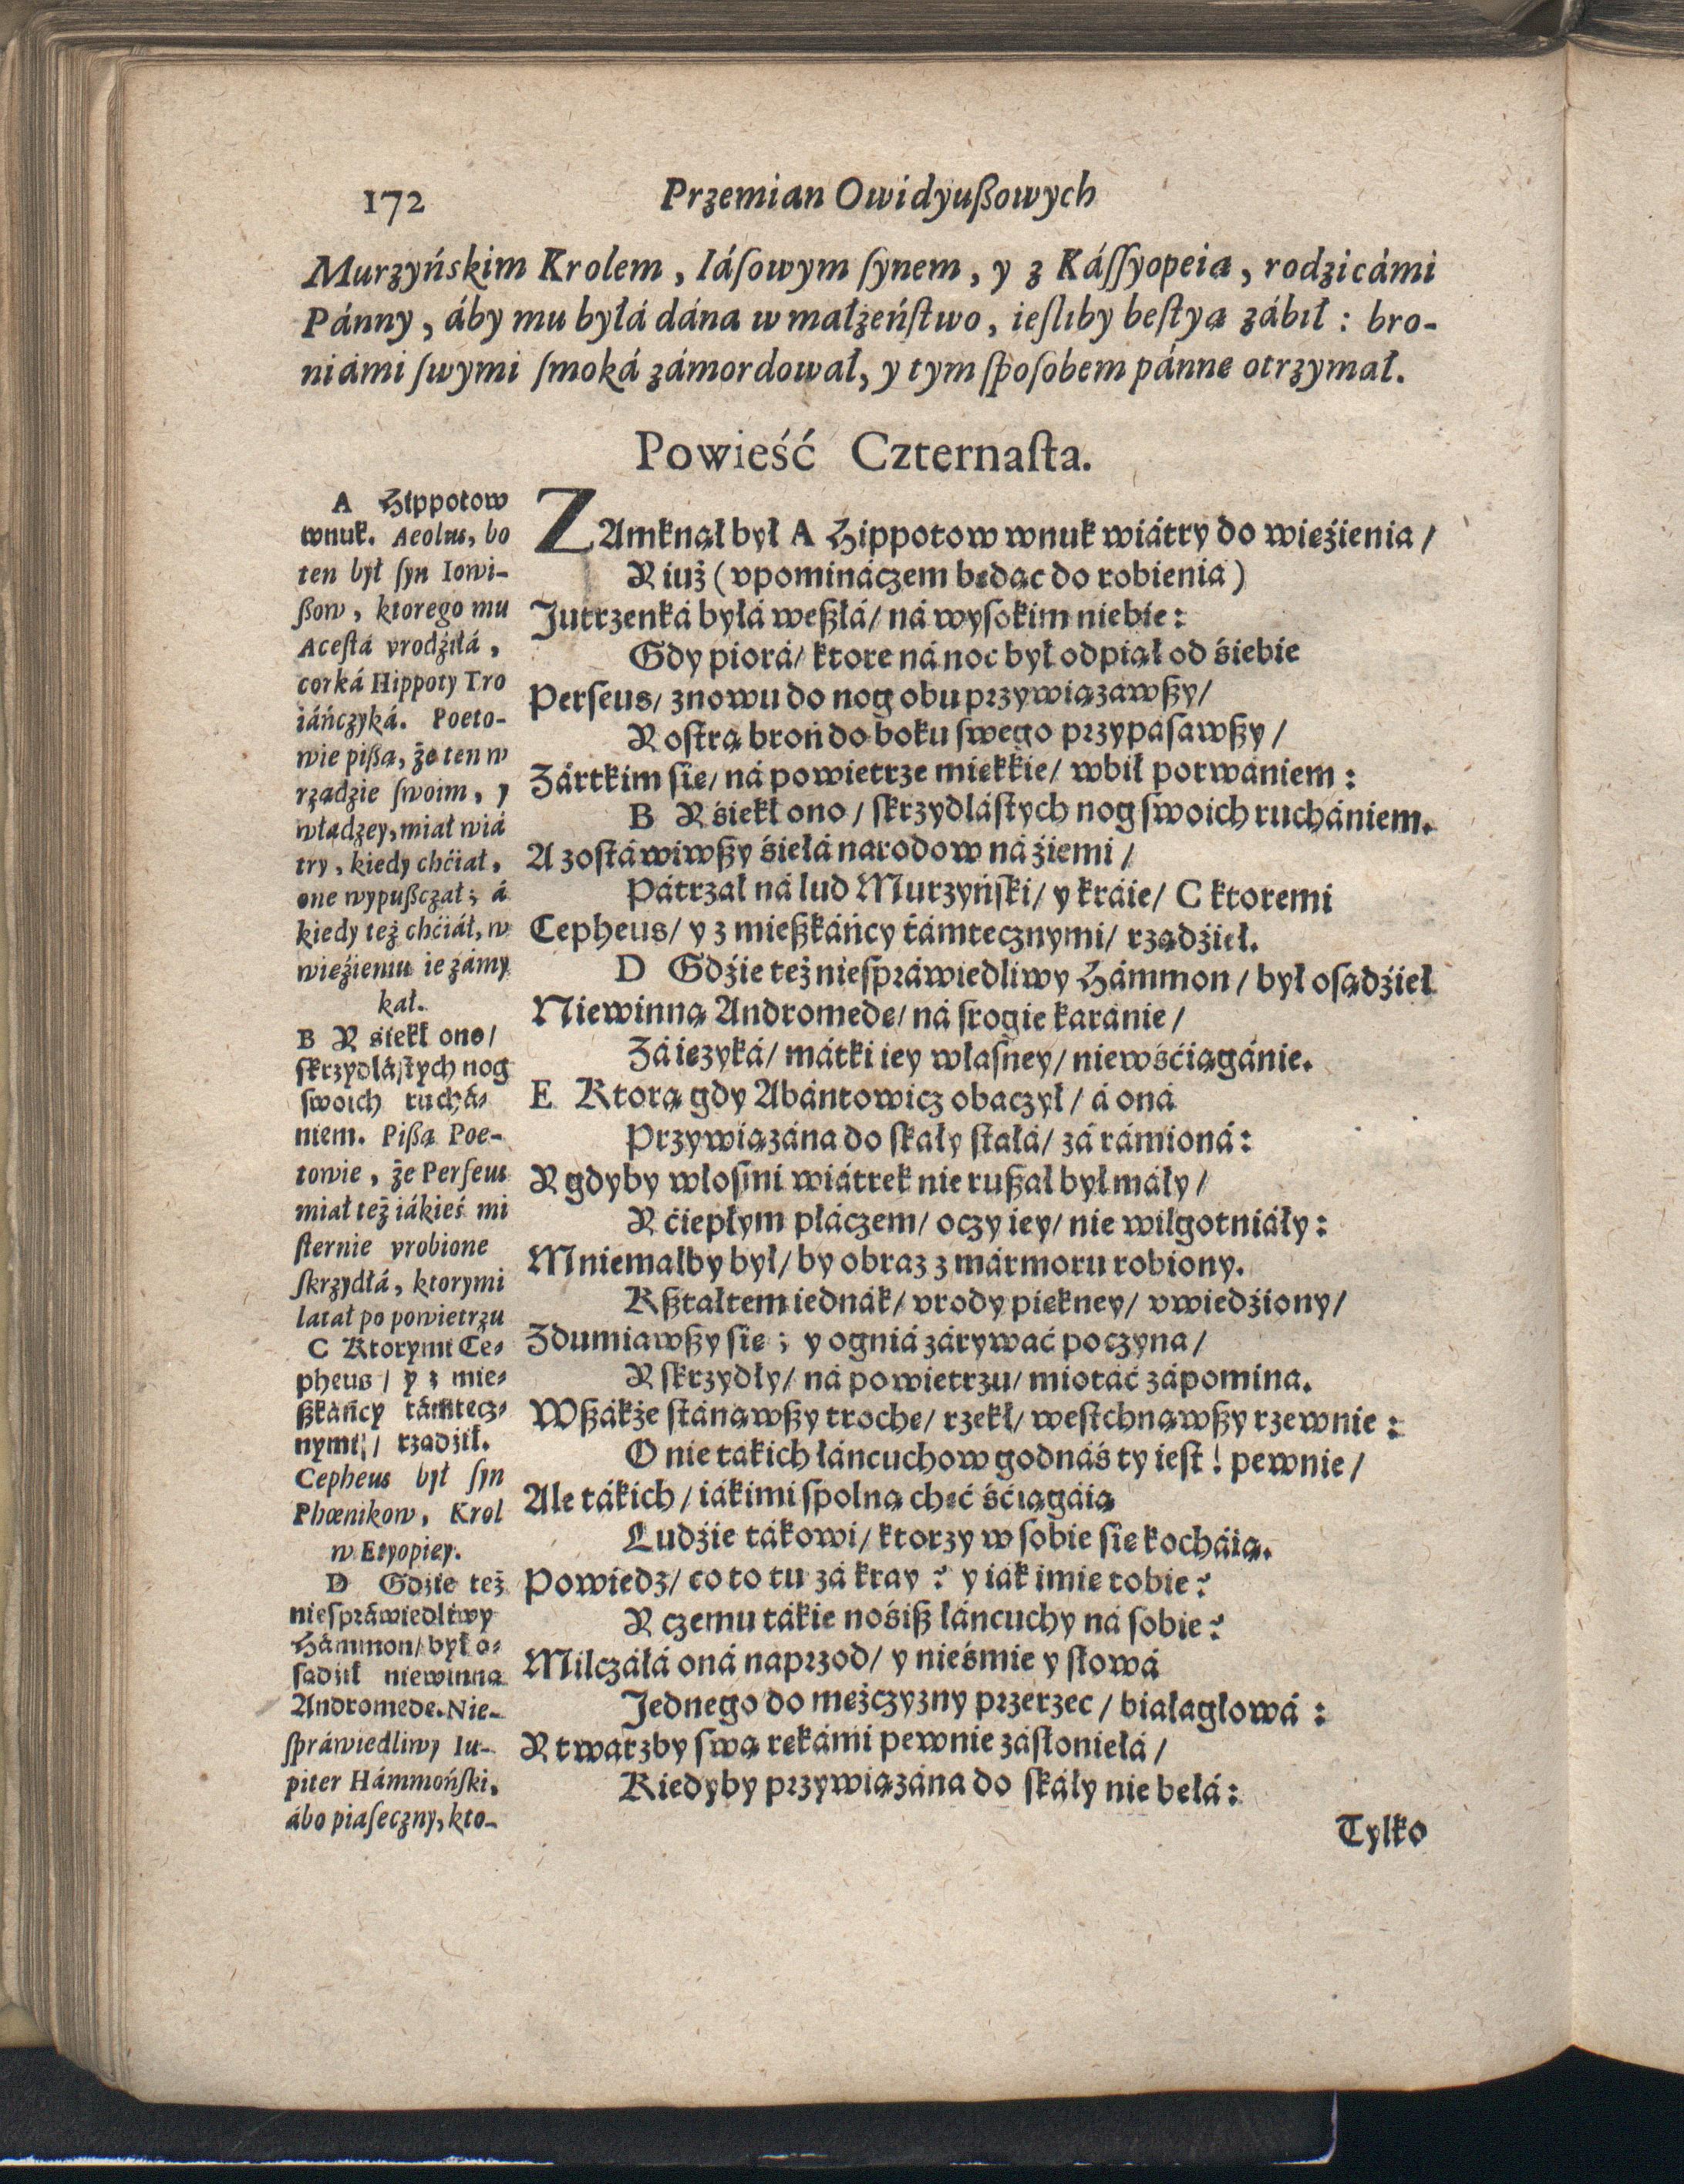 172 Przemian Owidyußowych
Murzyńskim Krolem, Iáſowym ſynem, y z Káſſyopeia, rodzicámi
Pánny, áby mu byłá dána w małżeńſtwo, ieſliby beſtyą zábił: bro-
niámi ſwymi ſmoká zámordował, y tym ſpoſobem pánne otrzymał.
Powieść Czternaſta.
A Hippotow
wnuk. Aeolus, bo
ten był ſyn Iowi-
ßow, ktorego mu
Aceſtá vrodźiłá,
corká Hippoty Tro
iáńczyká. Poeto-
wie pißą, że ten w
rządzie ſwoim, y
władzey, miał wiá
try, kiedy chćiał,
one wypußczał; á
kiedy też chćiáł, w
wieźieniu ie zámy
kał.
B Y siekł ono/
ſkrzydláſtych nog
ſwoich ruchá-
niem. Pißą Poe-
towie, że Perſeus
miał też iákieś mi
ſternie vrobione
ſkrzydłá, ktorymi
latał po powietrzu
C Ktorymi Ce-
pheus/ y z mie-
ßkáńcy támtecz-
nymi/ rządźił.
Cepheus był ſyn
Phœnikow, Krol
w Etyopiey.
D Gdźie też
nieſpráwiedliwy
Hámmon/ był o-
ſądźił niewinną
Andromede. Nie-
ſpráwiedliwy Iu-
piter Hámmońſki,
ábo piaſeczny, kto-
ZAmknął był A Hippotow wnuk wiátry do więźienia/
Y iuż (vpomináczem będąc do robienia)
Jutrzenká byłá weßłá/ ná wyſokim niebie:
Gdy piorá/ ktore ná noc był odpiął od śiebie
Perſeus/ znowu do nog obu przywiązawßy/
Y oſtrą broń do boku ſwego przypaſawßy/
Zártkim ſie/ ná powietrze miękkie/ wbił porwániem:
B Y śiekł ono/ ſkrzydláſtych nog ſwoich ruchániem.
A zoſtáwiwßy śiełá narodow ná źiemi/
Pátrzał ná lud Murzyńſki/ y kráie/ C ktoremi
Cepheus/ y z mießkáńcy támtecznymi/ rządźieł.
D Gdźie też nieſpráwiedliwy Hámmon/ był oſądźieł
Niewinną Andromede/ ná ſrogie karánie/
Zá ięzyká/ mátki iey właſney/ niewśćiągánie.
E Ktorą gdy Abántowicz obaczył/ á oná
Przywiązána do ſkały ſtałá/ zá rámioná:
Y gdyby włoſmi wiátrek nie rußał był máły/
Y ćiepłym płáczem/ oczy iey/ nie wilgotniáły:
Mniemałby był/ by obraz z mármoru robiony.
Kßtałtem iednák/ vrody piękney/ vwiedźiony/
Zdumiawßy ſie; y ogniá zárywáć poczyna/
Y ſkrzydły/ ná powietrzu/ miotáć zápomina.
Wßákże ſtánąwßy troche/ rzekł/ weſtchnąwßy rzewnie:
O nie tákich łáncuchow godnáś ty ieſt! pewnie/
Ale tákich/ iákimi ſpolną chęć śćiągáią
Ludźie tákowi/ ktorzy w ſobie ſie kocháią.
Powiedz/ co to tu zá kray? y iák imie tobie?
Y czemu tákie nośiß łáncuchy ná ſobie?
Milczáłá oná naprzod/ y nieśmie y ſłowá
Jednego do mężczyzny przerzec/ białagłowá:
Y twarzby ſwą rękámi pewnie záſłoniełá/
Kiedyby przywiązána do ſkáły nie bełá:
Tylko